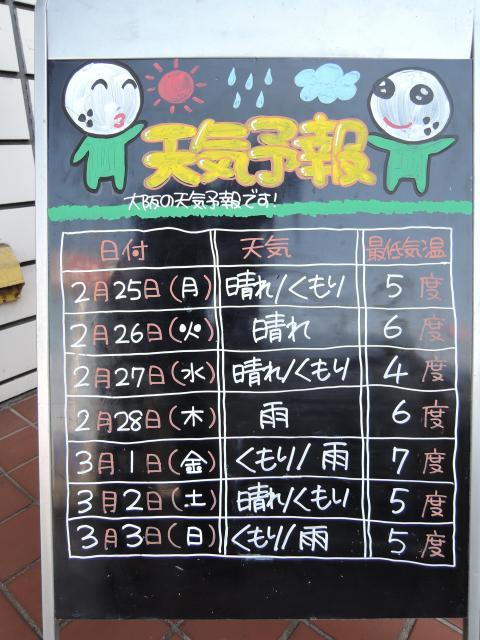 天気予報
大阪の天気予報です!
日付 天気 最低気温
2月25日(月) 晴れ/くもり 5度
2月26日(火) 晴れ 6度
2月27日(水) 晴れ/くもり 4度
2月28日(木) 雨 6度
3月1日(金) くもり/雨 7度
3月2日(土) 晴れ/くもり 5度
3月3日(日) くもり/雨 5度